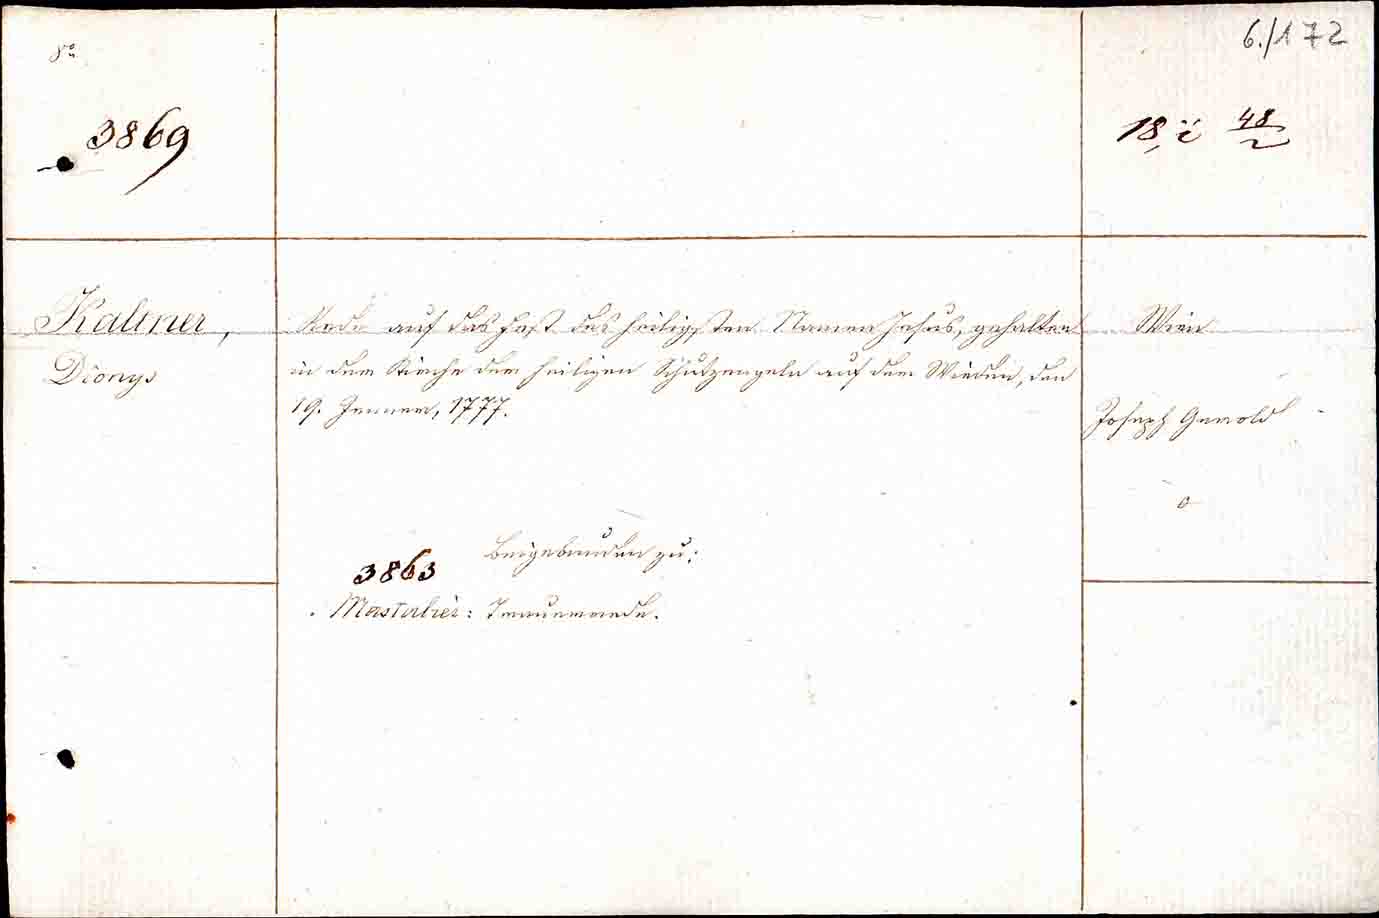 8º
6./172
3869
18, ï 48/2
Kaltner,
Dionys
Rede auf das Fest des heiligsten Namen Jesus, gehalten
in der Kirche der heiligen Schutzengeln auf der Wieden, den
19. Jenner, 1777.
Wien
Joseph Gerold
o
Beigebunden zu:
3863
Mastalier: Trauerrede.